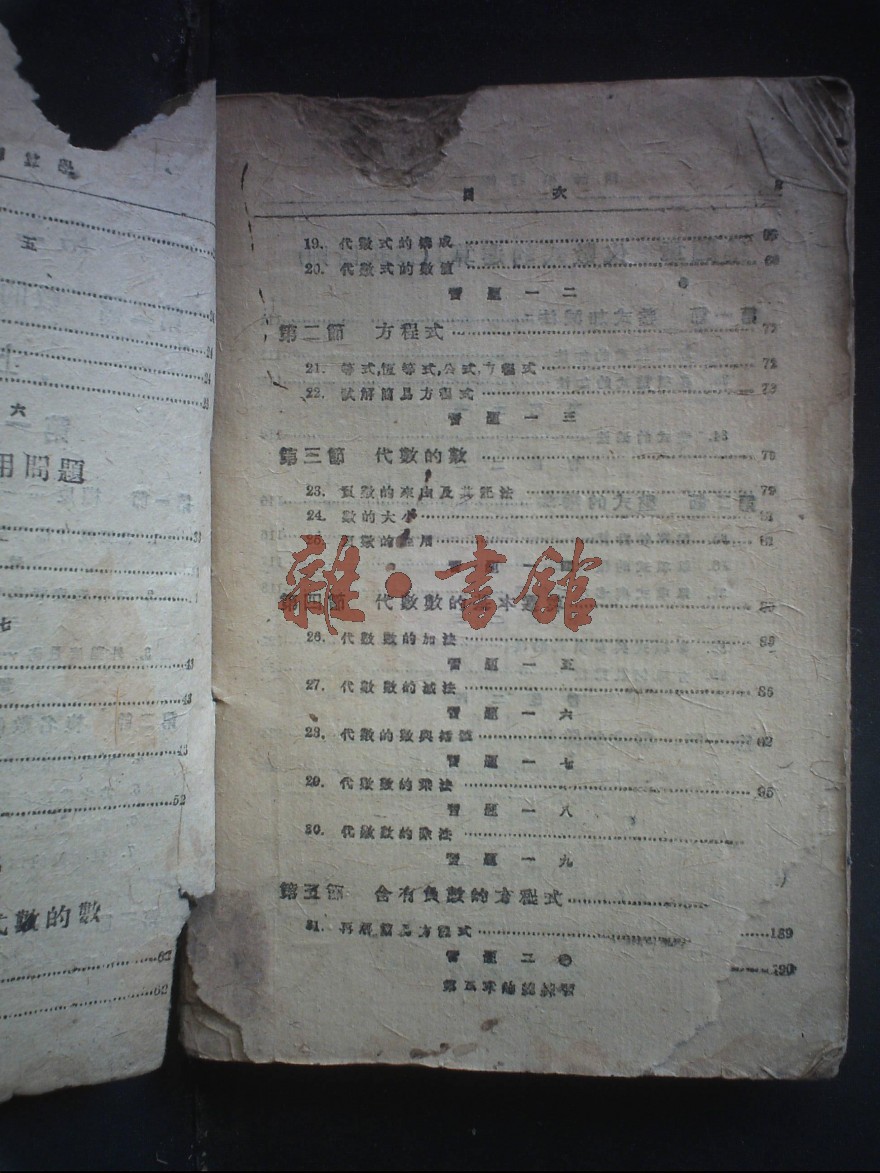 五
六
用問題
七
43
43
43
52
代數的數
62
62
目 次
19. 代數式的構成
20. 代數式的數值
習 題 一 二
第二節 方程式 72
21. 等式,恆等式,公式,方程式 72
22. 試解簡易方程式 73
習 題 一 三
第三節 代數的數 79
23. 負數的來由及其記法 79
24. 數的大小 81
25. 負數的應用 81
習 題 一 四
第四節 代數數的基本運算
26. 代數數的加法 85
習 題 一 五
27. 代數數的減法 86
習 題 一 六
28. 代數的數與絕值 92
習 題 一 七
29. 代數數的乘法 95
習 題 一 八
30. 代數數的除法
習 題 一 九
第五節 含有負數的方程式
31. 再解簡易方程式 189
習 題 二 〇
第五章的總練習 190
雜·書館